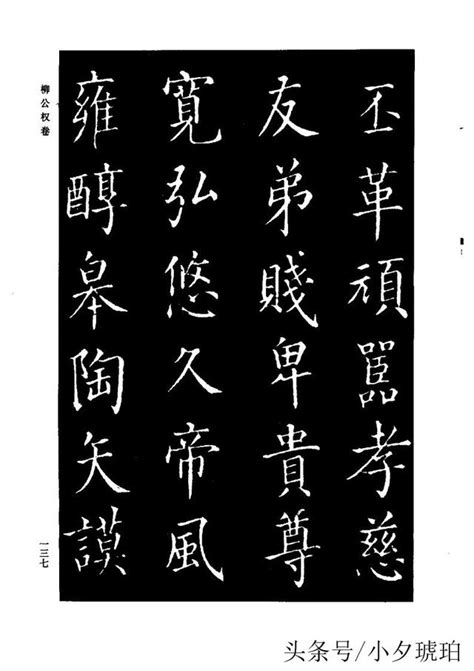 丕革頑嚚孝慈
友弟賤卑貴尊
寬弘悠久帝風
雍醇皋陶矢謨
柳公权卷
一三七
头条号/小夕琥珀